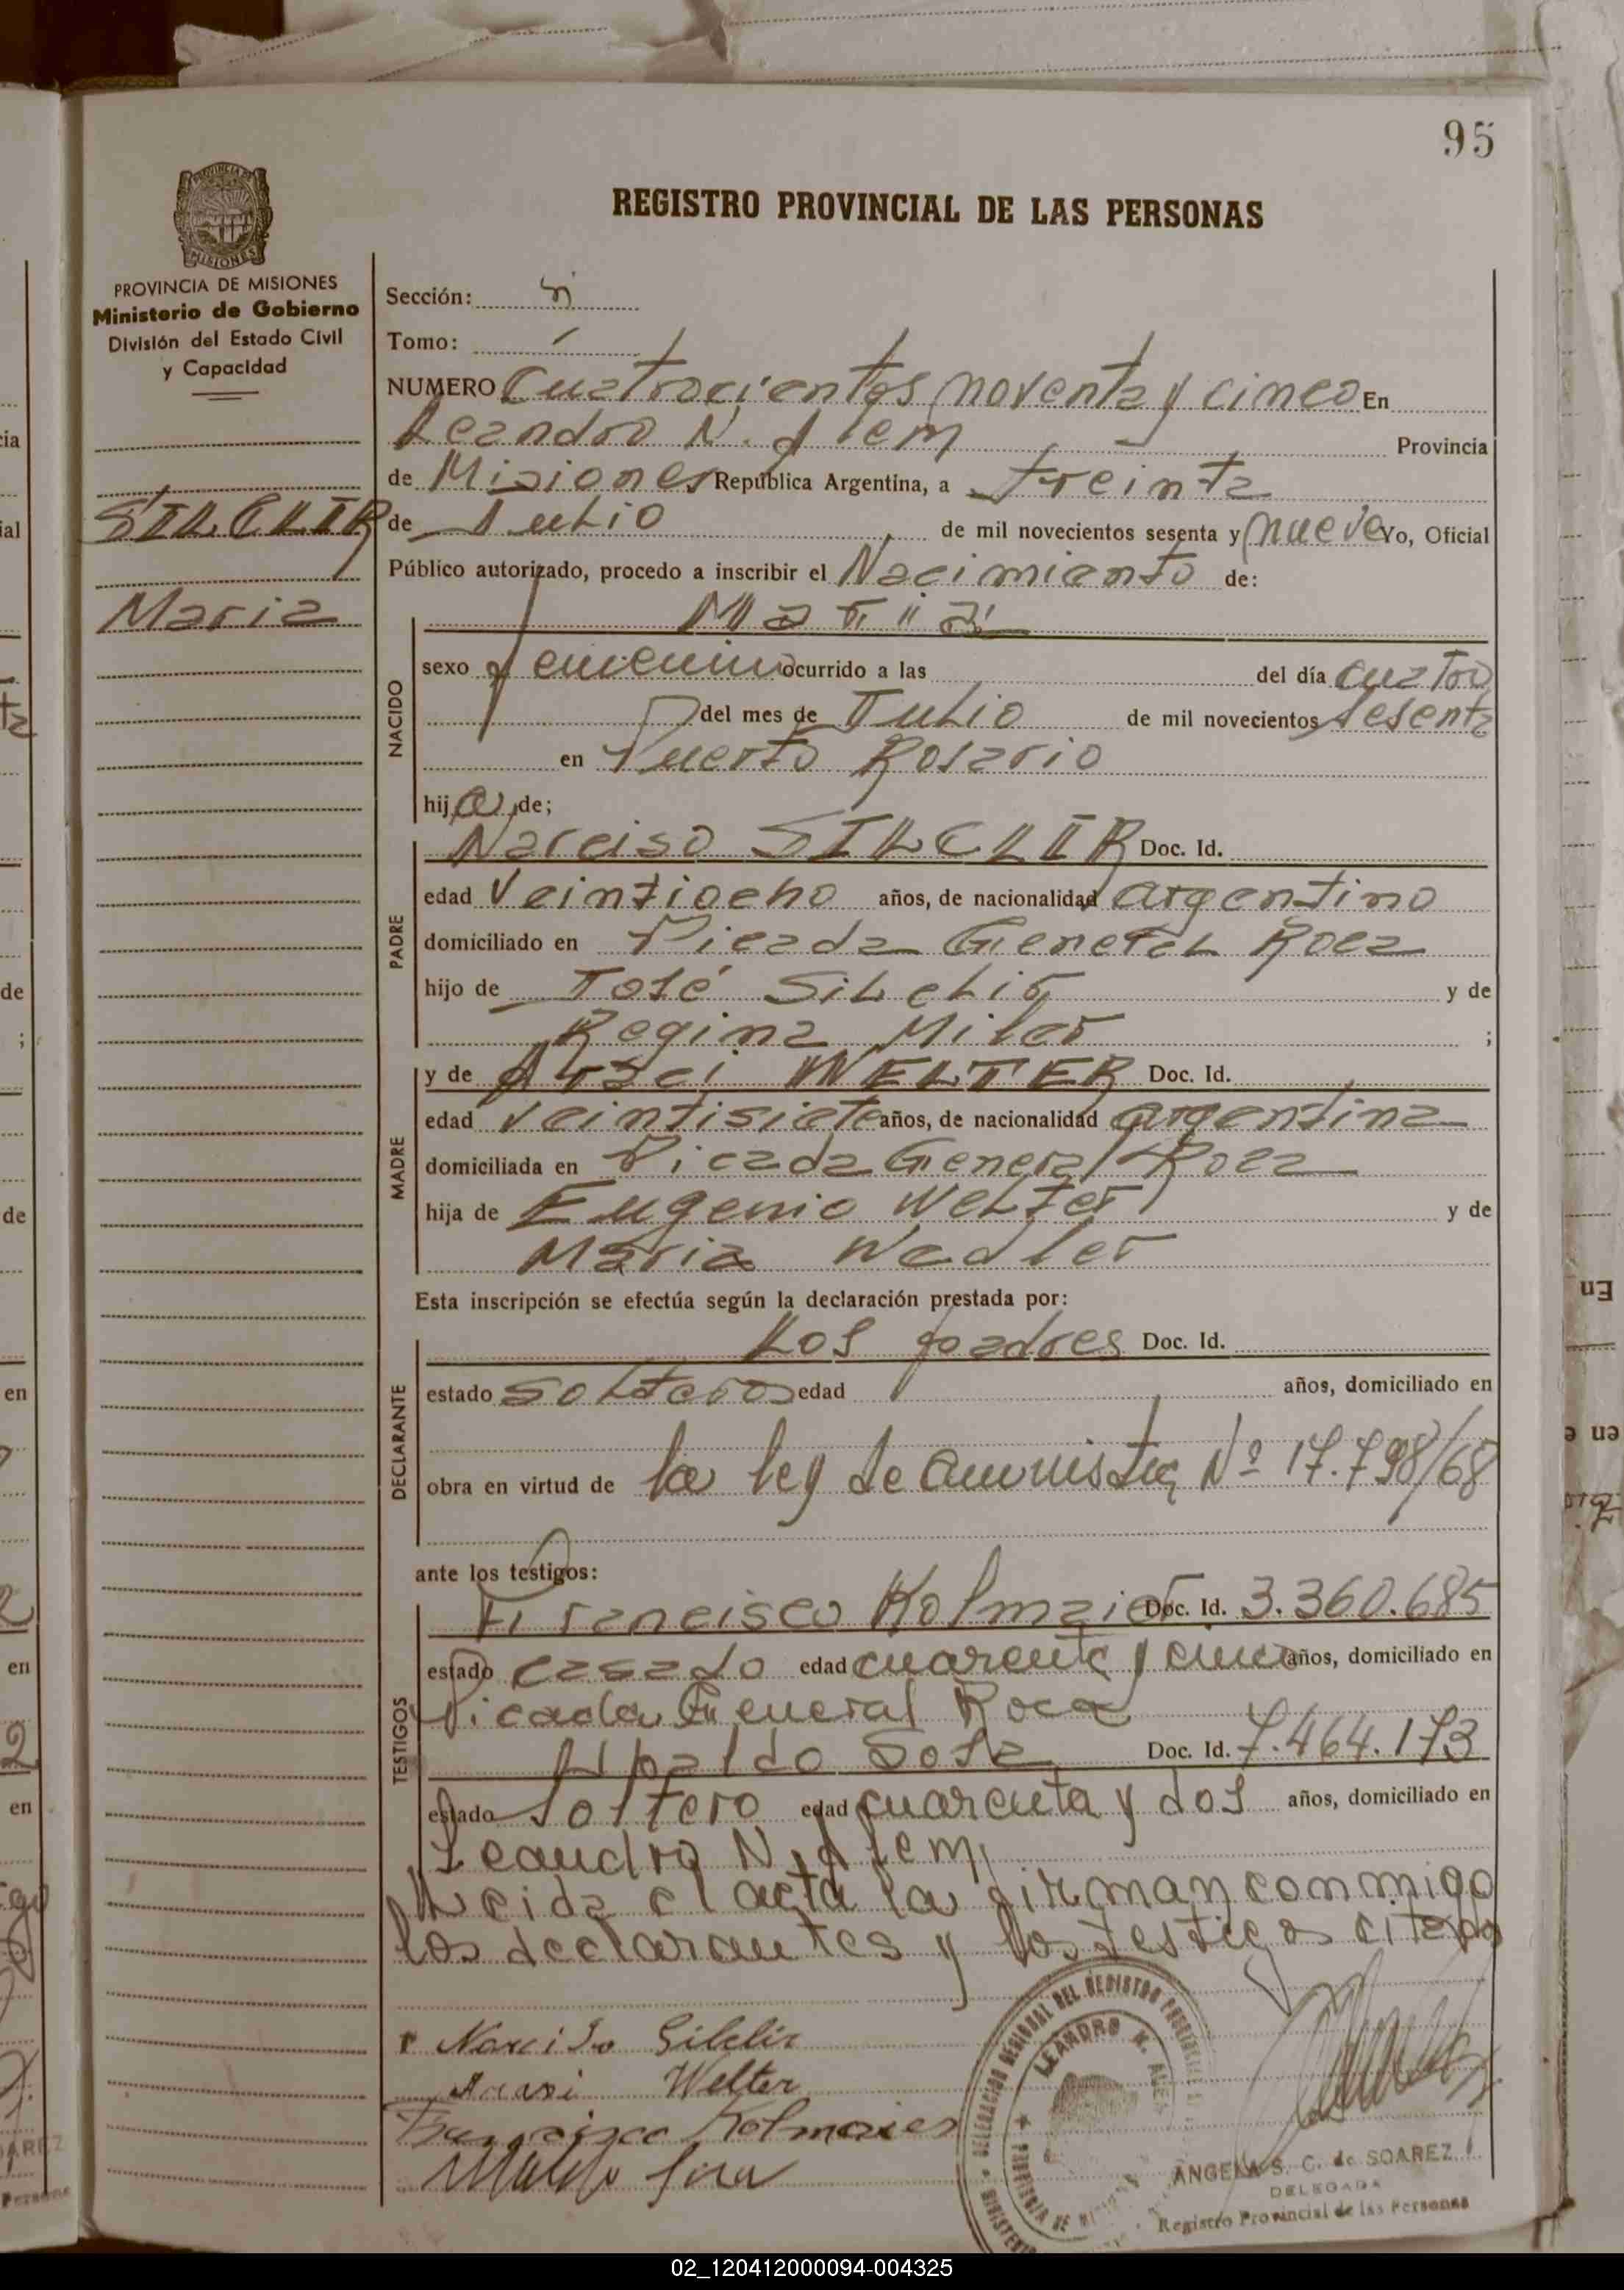 95
REGISTRO PROVINCIAL DE LAS PERSONAS
PROVINCIA DE MISIONES
Ministerio de Gobierno
División del Estado Civil
y Capacidad
SILCLIR
Maria
Sección:
Tomo:
NUMERO Cuatrocientos noventa y cinco En
Leandro N. Alem Provincia
de Misiones República Argentina, a treinta
de Julio de mil novecientos sesenta y nueve Yo, Oficial
Público autorizado, procedo a inscribir el Nacimiento de:
NACIDO
Maria
sexo femenino ocurrido a las del día cuatro
del mes de Julio de mil novecientos sesenta
en Puerto Rosario
hija de;
PADRE
Narciso SILCLIR Doc. Id.
edad Veintiocho años, de nacionalidad argentino
domiciliado en Picada General Roca
hijo de José Silclir y de
Regina Miler ;
MADRE
y de WELTER Doc. Id.
edad veintisiete años, de nacionalidad argentina
domiciliada en Picada General Roca
hija de Eugenio Welter y de
Maria Wedler
Esta inscripción se efectúa según la declaración prestada por:
DECLARANTE
Los padres Doc. Id.
estado solteros edad años, domiciliado en
obra en virtud de la ley de amnistia Nº 17.798/68
ante los testigos:
TESTIGOS
Francisco Kolmaier Doc. Id. 3.360.685
estado casado edad cuarenta y cinco años, domiciliado en
Picada General Roca
Ubaldo Sosa Doc. Id. 7.464.173
estado Soltero edad cuarenta y dos años, domiciliado en
Leandro N. Alem
Leida el acta la firman conmigo
los declarantes y los testigos citado
Narciso Silclir
Welter
Francisco Kolmaier
LEANDRO N. ALEM
ANGELA S. C. de SOAREZ
DELEGADA
Registro Provincial de las Personas
02_120412000094-004325